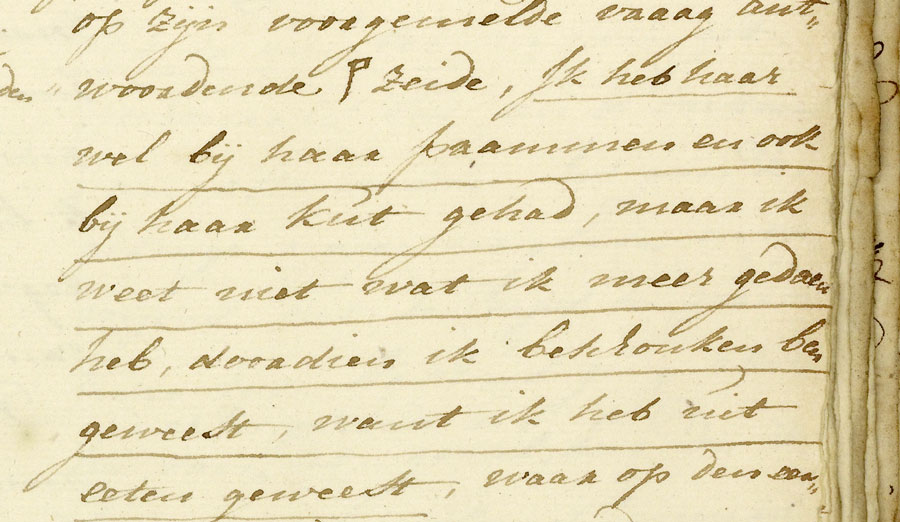 op zijn voorgemelde vraag ant„
woordende zeide, Ik heb haar
wel bij haar prammen en ook
bij haar kut gehad, maar ik
weet niet wat ik meer gedaen
heb, doordien ik beschonken ben
geweest, want ik heb uit
eeten geweest, waar op den een„